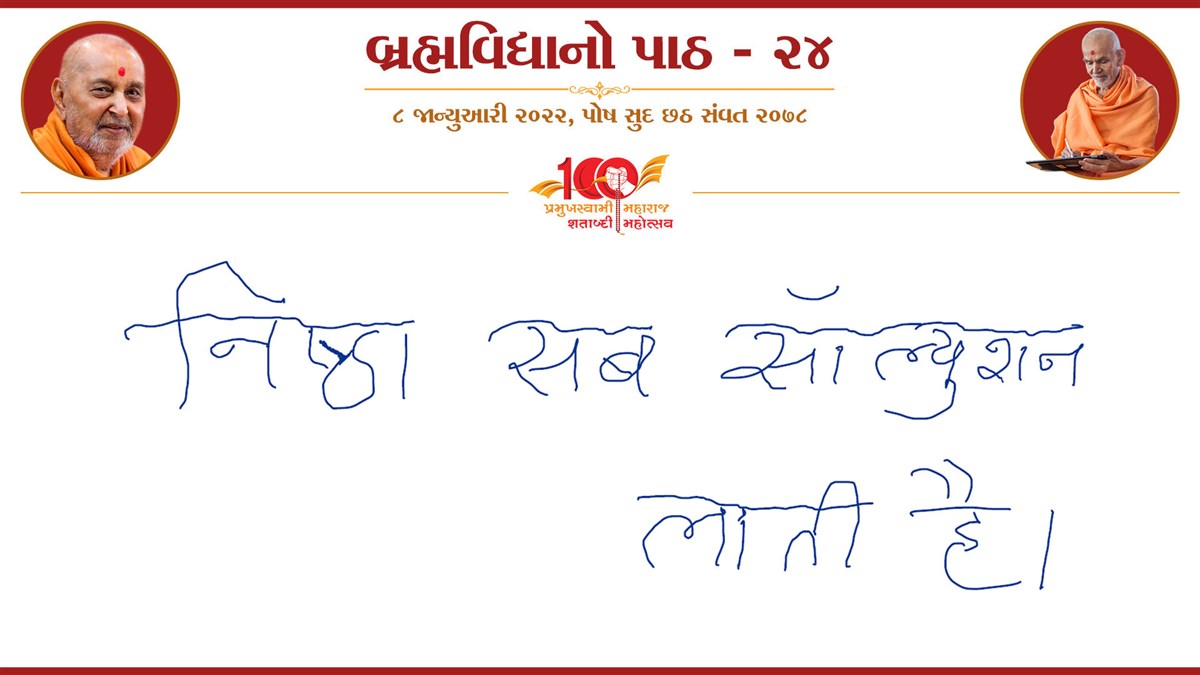 બ્રહ્મવિદ્યાનો પાઠ - ૨૪
૮ જાન્યુઆરી ૨૦૨૨, પોષ સુદ છઠ સંવત ૨૦૭૮
100
પ્રમુખસ્વામી મહારાજ
શતાબ્દી મહોત્સવ
निष्ठा सब सॉल्युशन
लाती है।